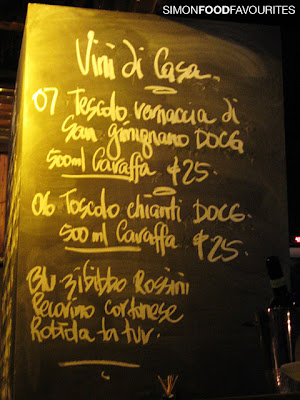 SIMONFOODFAVOURITES
Vini di Casa
07 Toscolo vernaccia di
San gimignano DOCG
500ml Caraffa $25.
06 Toscolo chianti DOCG.
500ml Caraffa $25.
Blu zibibbo Rossini
Pecorino cortonese
Robiola la tur.